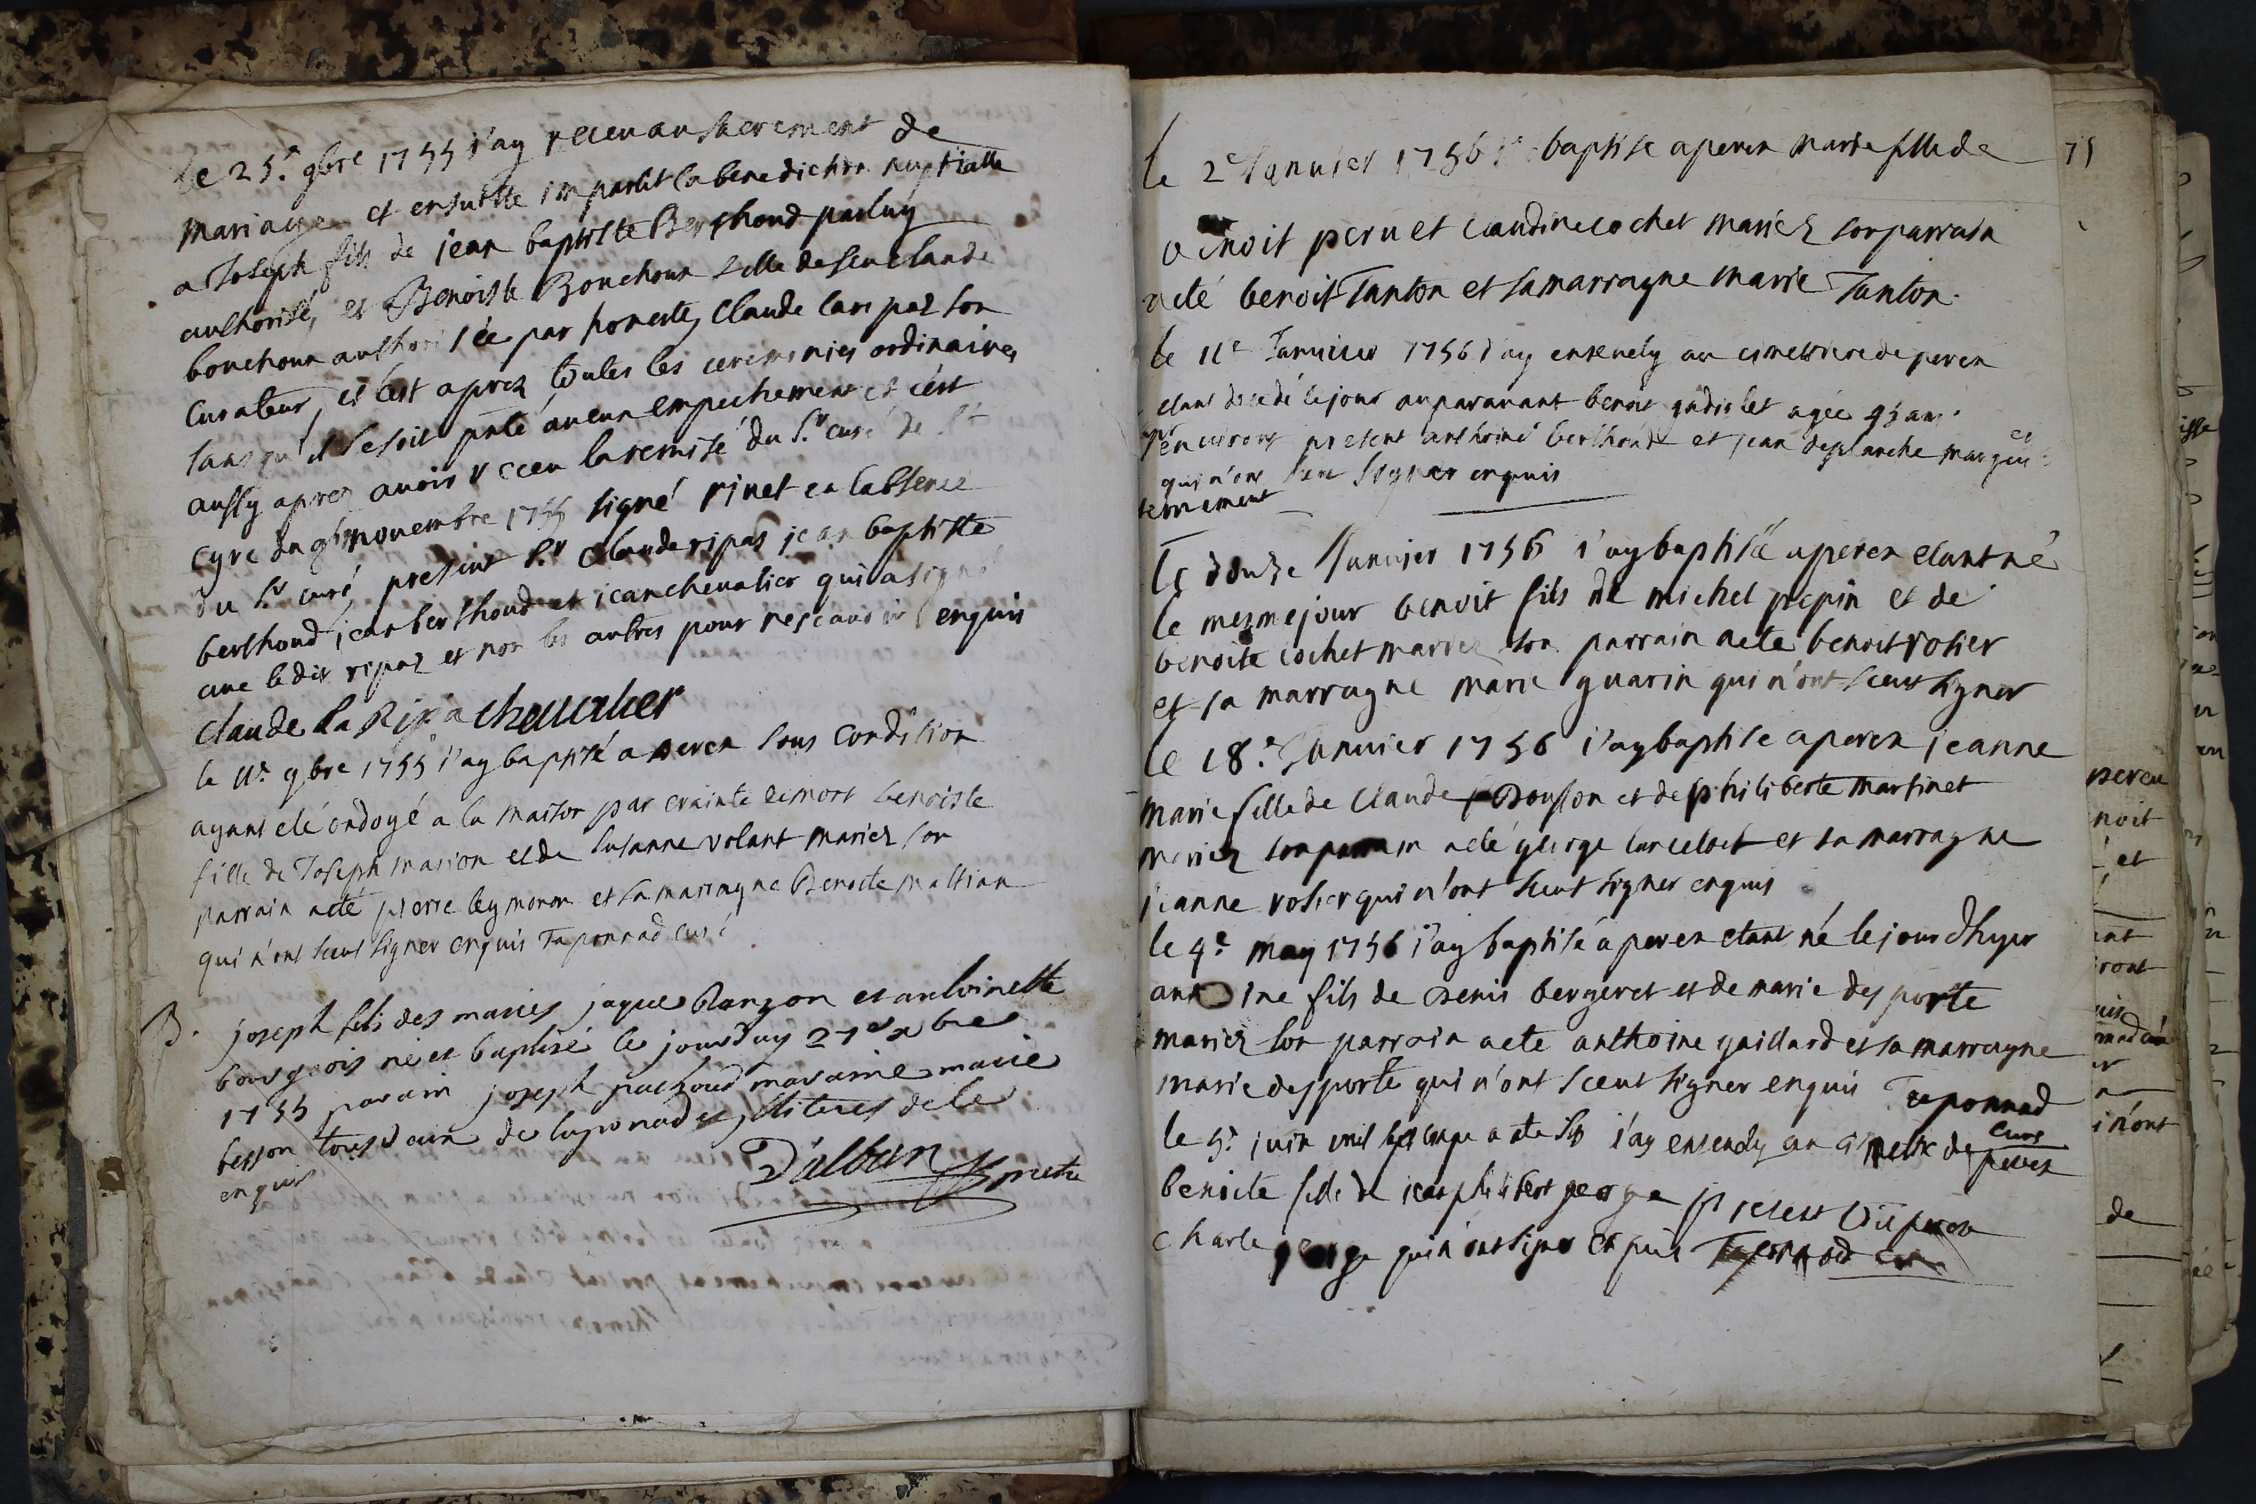 le 25.e 9bre 1755 j'ay receu au sacrement de
mariage et ensuitte imparti la benediction nuptialle
a Joseph fils de jean baptiste Berthoud par luy
authorisé, et Benoiste Bouchoux fille de feu claude
bouchoux authorisée par honeste claude laripaz son
curateur, et c'est aprez toutes les ceremonies ordinaires
sans qu'il se soit pnté aucun empechement et c'est
aussy aprez avoir receu la remise du Sr curé de St
cyre du novembre 1755 signé pinet en l'absence
du Sr curé, present Sr claude ripas jean baptiste
berthoud, jean berthoud et jean chevalier qui a signé
avec ledit ripaz et non les autres pour ne scavoir enquis
claude La Ripa chevalier
le 11e 9bre 1755 j'ay baptisé a perex sous condition
ayant eté ondoyé a la maison par crainte de mort benoiste
fille de Joseph marion et de susanne volant mariez son
parrain a eté pierre leymonon et sa marragne Benoite
qui n'ont sceut signer enquis Taponnad curé
B. joseph fils des mariés jaque blanzon et antoinette
bourgeois né et baptisé le jourduy 27e xbre
1755 parain joseph pachoud maraine marie
besson tous deux de laponad et illiteres de le
enquis
D'alban
le 2e Janvier 1756 j'ay baptise a perex marie fille de
benoit peru et claudine cochet mariez son parrain
a eté benoit Tanton et sa marragne marie Tanton.
le 11e Janvier 1756 j'ay ensevely au cimettiere de perex
etant decedé le jour auparavant benoit gadiolet agée 43 ans
environt present anthoine berthoud et jean desplanche marguillier
qui n'ont sceu signer enquis
terrement
le douze Janvier 1756 j'ay baptisé a perex etant né
le mesme jour benoit fils de michel pepin et de
benoite cochet mariez son parrain a eté benoit rosier
et sa marragne marie guarin qui n'ont sceut signer
le 18.e Janvier 1756 j'ay baptise a perex jeanne
marie fille de claude Bouston et de philiberte martinet
mariez son parrain a eté george lancelot et sa marragne
jeanne rosier qui n'ont sceut signer enquis
le 4e may 1756 j'ay baptisé a perex etant né le jour d'hyer
antoine fils de denis bergeret et de marie desporte
mariez son parrain a ete anthoine gaillard et sa marragne
marie desporte qui n'ont sceut signer enquis Taponnad
curé
le 5e juin mil sept cinquante six j'ay ensevely au cimetie de perex
benoite fille de jean philibert george present
charle george qui n'ont signer enquis Taponnad curé
75